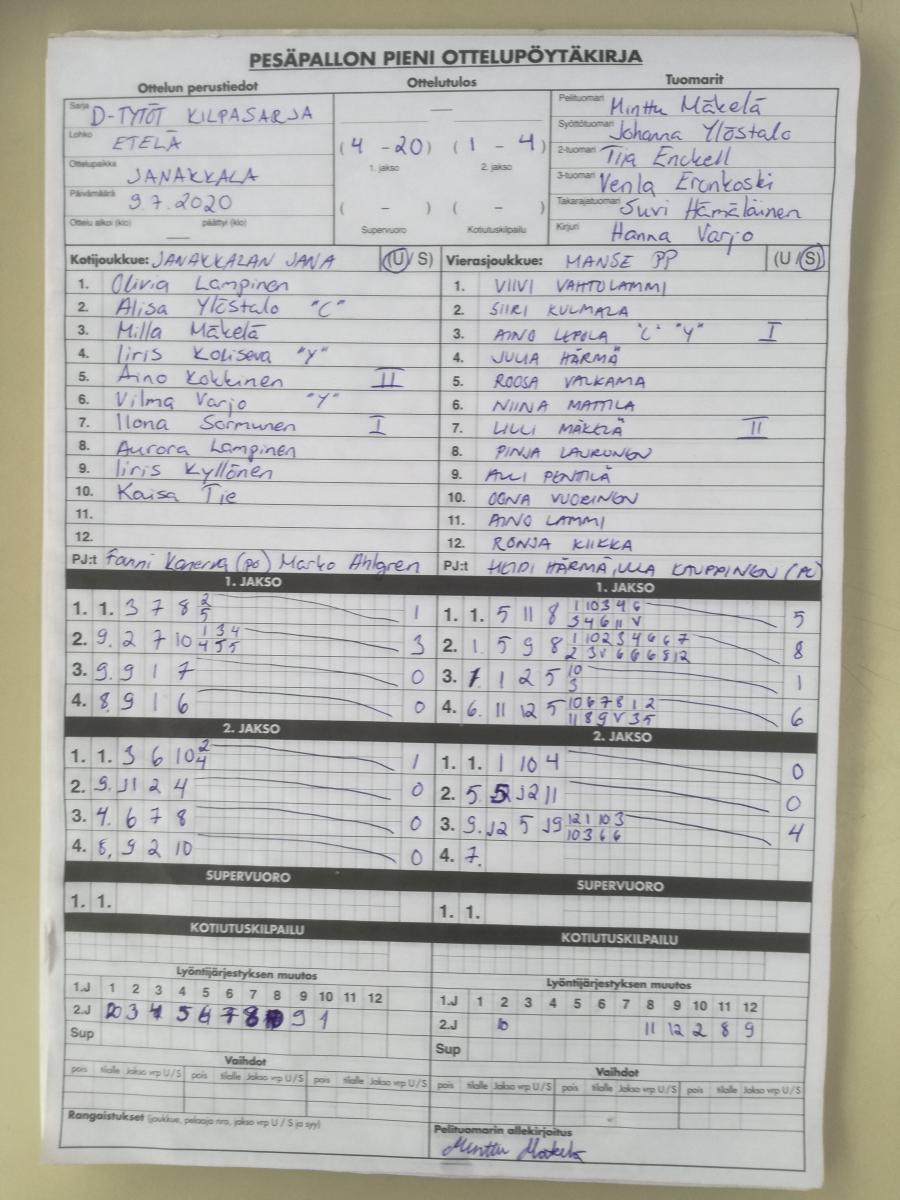 PESÄPALLON PIENI OTTELUPÖYTÄKIRJA
Ottelun perustiedot Ottelutulos Tuomarit
Sarja D-TYTÖT KILPASARJA
Lohko ETELÄ
Ottelupaikka JANAKKALA
Päivämäärä 9.7.2020
Ottelu alkoi (klo) — päättyi (klo)
—
(4 - 20) (1 - 4)
1. jakso 2. jakso
( - ) ( - )
Supervuoro Kotiutuskilpailu
Pelituomari Minttu Mäkelä
Syöttötuomari Johanna Ylöstalo
2-tuomari Tiia Enckell
3-tuomari Venla Eronkoski
Takarajatuomari Suvi Hämäläinen
Kirjuri Hanna Varjo
Kotijoukkue: JANAKKALAN JANA (U/S)
1. Olivia Lampinen
2. Alisa Ylöstalo "C"
3. Milla Mäkelä
4. Iiris Koliseva "Y"
5. Aino Kokkinen II
6. Vilma Varjo "Y"
7. Ilona Sormunen I
8. Aurora Lampinen
9. Iiris Kyllönen
10. Kaisa Tie
11.
12.
PJ:t Fanni Kanerva (po) Marko Ahlgren
Vierasjoukkue: MANSE PP (U/S)
1. VIIVI VAHTOLAMMI
2. SIIRI KULMALA
3. AINO LEPOLA "C" "Y" I
4. JULIA HÄRMÄ
5. ROOSA VALKAMA
6. NIINA MATTILA
7. LILLI MÄKELÄ II
8. PINJA LAURONEN
9. ALLI PENTILÄ
10. OONA VUORINEN
11. AINO LAMMI
12. RONJA KIIKKA
PJ:t HEIDI HÄRMÄ, ULLA KAUPPINEN (PE)
1. JAKSO
1. 1. 3 7 8 2 1
5
2. 9. 2 7 10 1 3 4 3
4 5 5
3. 9. 9 1 7 0
4. 8. 9 1 6 0
2. JAKSO
1. 1. 3 6 10 2 1
4
2. 9. 11 2 4 0
3. 4. 6 7 8 0
4. 8. 9 2 10 0
SUPERVUORO
1. 1.
KOTIUTUSKILPAILU
Lyöntijärjestyksen muutos
1.J 1 2 3 4 5 6 7 8 9 10 11 12
2.J 2 3 4 5 6 7 8 10 9 1
Sup
Vaihdot
pois tilalle Jakso vrp U/S pois tilalle Jakso vrp U/S pois tilalle Jakso vrp U/S
Rangaistukset (joukkue, pelaaja nro, jakso vrp U / S ja syy)
1. JAKSO
1. 1. 5 11 8 1 10 3 4 6 5
3 4 6 11 V
2. 1. 5 9 8 1 10 2 3 4 6 6 7 8
2 3 V 6 6 6 8 12
3. 1. 1 2 5 10 1
3
4. 6. 11 12 5 10 6 7 8 1 2 6
11 8 9 V 3 5
2. JAKSO
1. 1. 1 10 4 0
2. 5. 5 12 11 0
3. 9. 12 5 19 12 1 10 3 4
10 3 6 6
4. 7.
SUPERVUORO
1. 1.
KOTIUTUSKILPAILU
Lyöntijärjestyksen muutos
1.J 1 2 3 4 5 6 7 8 9 10 11 12
2.J 10 11 12 2 8 9
Sup
Vaihdot
pois tilalle Jakso vrp U/S pois tilalle Jakso vrp U/S pois tilalle Jakso vrp U/S
Pelituomarin allekirjoitus
Minttu Mäkelä